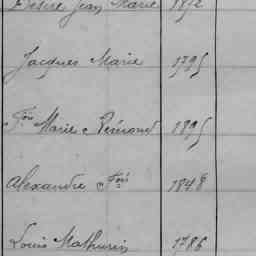 Désiré Jean Marie 1872
Jacques Marie 1795
Fois Marie Rémond 1895
Alexandre Fois 1848
Louis Mathurin 1786